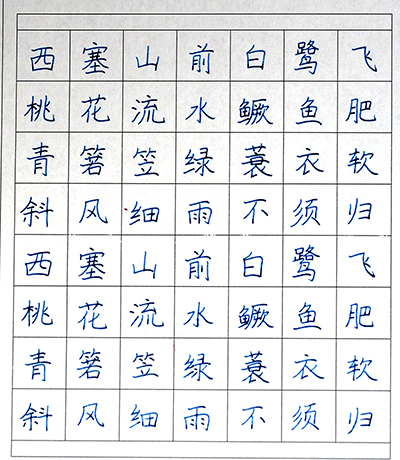 西塞山前白鹭飞
桃花流水鳜鱼肥
青箬笠绿蓑衣软
斜风细雨不须归
西塞山前白鹭飞
桃花流水鳜鱼肥
青箬笠绿蓑衣软
斜风细雨不须归